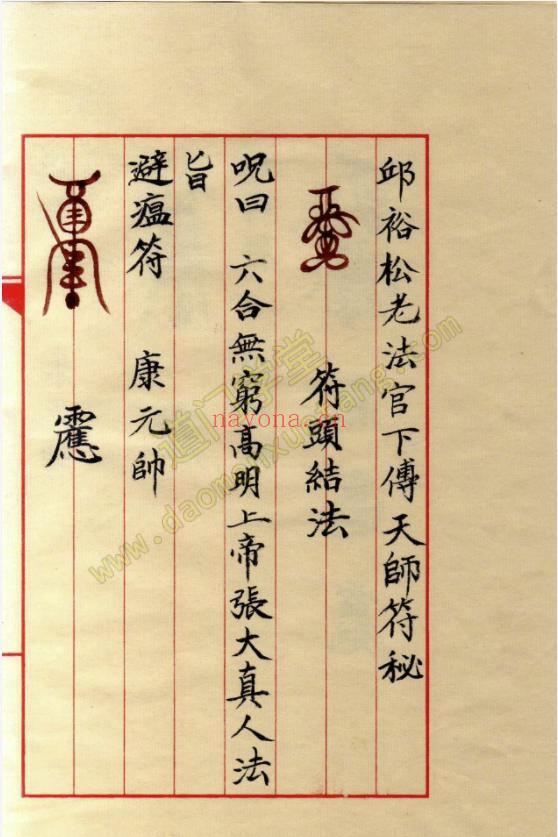 邱裕松老法官下傳天師符秘
符頭結法
呪曰 六合無窮高明上帝張大真人法
旨
避瘟符 康元帥
道门学堂
www.daomenxuetang.com
nayona.cn